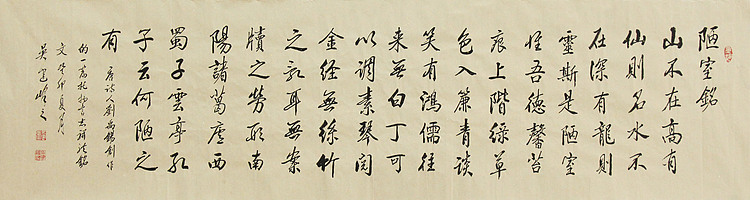 陋室銘
山不在高有
仙則名水不
在深有龍則
靈斯是陋室
惟吾德馨苔
痕上階綠草
色入簾青談
笑有鴻儒往
来無白丁可
以调素琴閲
金经無絲竹
之乱耳無案
牘之勞形南
陽諸葛廬西
蜀子雲亭孔
子云何陋之
有
唐诗人劉禹錫創作
的一篇托物言志駢体銘
文癸卯夏月
吴